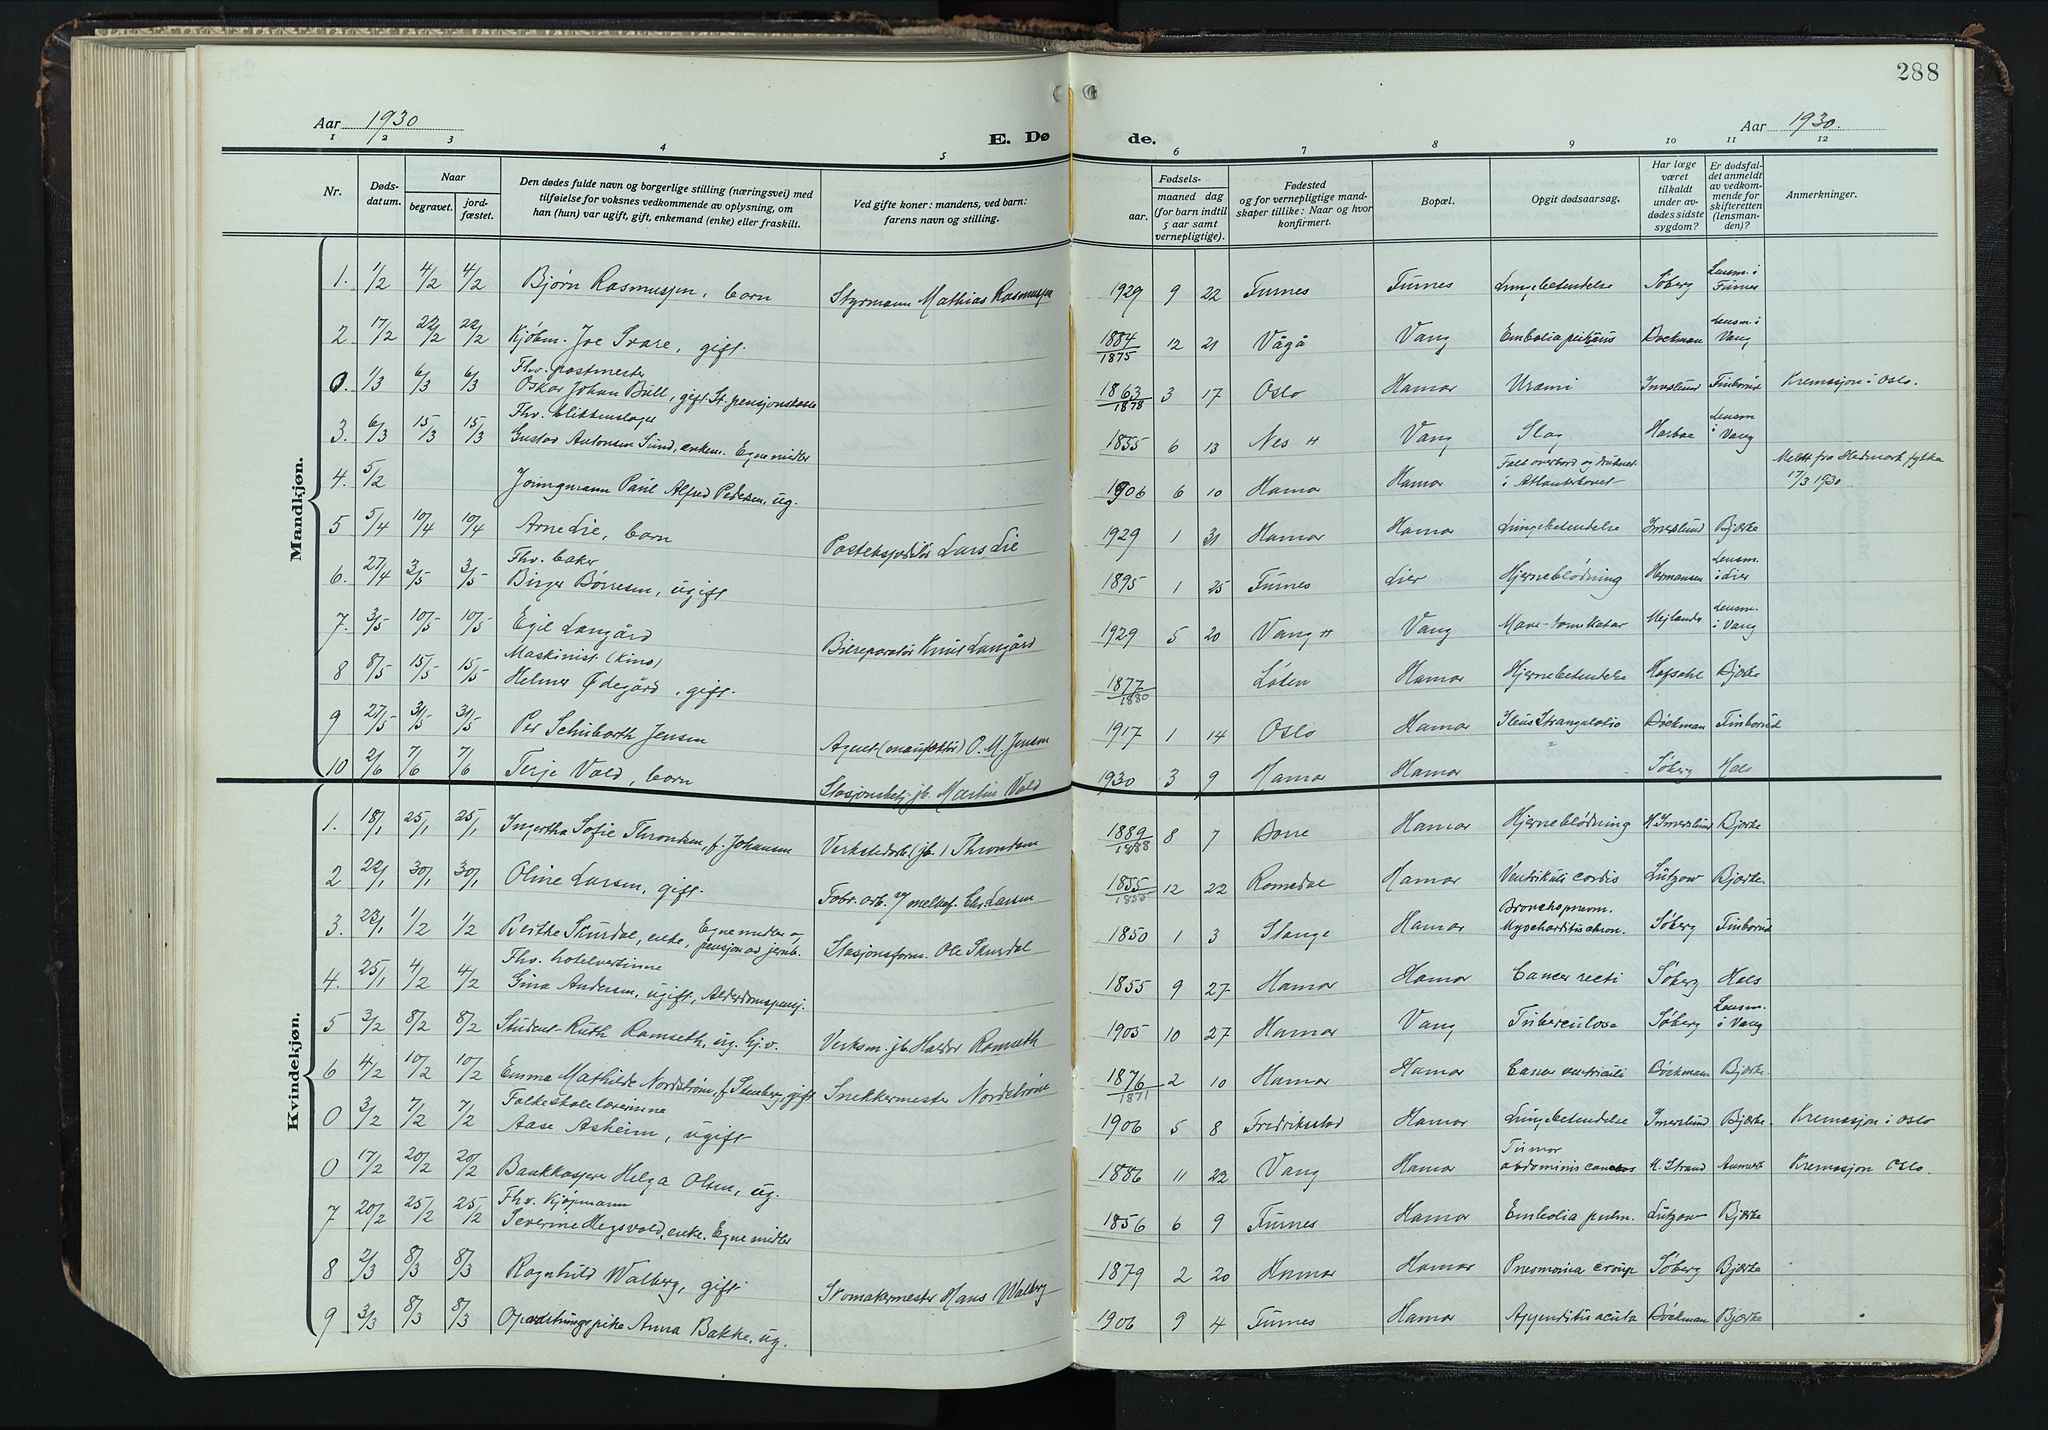 288
Aar 1930
E. Dø de.
Aar 1930.
1 2 3 4 5 6 7 8 9 10 11 12
Nr.
Døds-
datum.
Naar
begravet.
jord-
fæstet.
Den dødes fulde navn og borgerlige stilling (næringsvei) med
tilføielse for voksnes vedkommende av oplysning, om
han (hun) var ugift, gift, enkemand (enke) eller fraskilt.
Ved gifte koner: mandens, ved barn:
farens navn og stilling.
Fødsels-
aar.
maaned dag
(for barn indtil
5 aar samt
vernepligtige).
Fødested
og for vernepligtige mand-
skaper tillike: Naar og hvor
konfirmert.
Bopæl.
Opgit dødsaarsag.
Har læge
været
tilkaldt
under av-
dødes sidste
sygdom?
Er dødsfal-
det anmeldt
av vedkom-
mende for
skifteretten
(lensman-
den)?
Anmerkninger.
Mandkjøn.
1. 1/2 4/2 4/2 Bjørn Rasmussen, barn Styrmann Mathias Rasmussen 1929 9 22 Furnes Furnes Lungebetendelse Søberg Lensm. i Furnes
2 17/2 22/2 22/2 Kjøbm. Joe Svare, gift. 1884/1875 12 21 Vågå Vang Embolia Bøckman Lensm. i Vang
0. 1/3 6/3 6/3 Fhv. postmester
Oskar Johan Bull, gift. St. pensjonskasse 1863/1878 3 17 Oslo Hamar Uræmi Imerslund Finborud Kremasjon i Oslo.
3. 6/3 15/3 15/3 Fhv. blikkenslager
Gustav Antonsen Sund, enkem. Egne midler 1835 6 13 Nes H Vang Slag Harboe Lensm i Vang
4. 5/2 Jungmann Paul Alfred Pedersen, ug. 1906 6 10 Hamar Hamar Falt overbord og druknet
i Atlanterhavet Meldt fra Hedmark fylke
17/3 1930
5 5/4 10/4 10/4 Arne Lie, barn Postekspeditør Lars Lie 1929 1 31 Hamar Hamar Lungebetendelse Imerslund Bjerke
6. 27/4 3/5 3/5 Fhv. baker
Birger Børresen, ugift 1895 1 25 Furnes Lier Hjerneblødning Hermansen Lensm. i Lier
7. 3/5 10/5 10/5 Egil Langård Bilreparatør Knut Langård 1929 5 20 Vang H Vang Mave-tarmkatar Mejlander Lensm. i Vang
8 8/5 15/5 15/5 Maskinist (Kino)
Helmer Ødegård, gift. 1877/1880 Løten Hamar Hjernebetendelse Hofsahl Bjerke
9 27/5 31/5 31/5 Per Schuborth Jensen Agent (manufaktur) O. M. Jensen 1917 1 14 Oslo Hamar Ileus Strangulatio Bøckman Finborud
10 2/6 7/6 7/6 Terje Vold, barn Stasjonsbetj. jb. Martin Vold 1930 3 9 Hamar Hamar " Søberg Hals
Kvindekjøn.
1. 18/1 25/1 25/1 Ingertha Sofie Throndsen, f. Johansen Verkstedarb. (jb.) Throndsen 1889/1888 8 7 Borre Hamar Hjerneblødning H. Imerslund Bjerke
2 22/1 30/1 30/1 Oline Larsen, gift. Fabr. arb. v/ melkef. Chr. Larsen 1855/1855 12 22 Romedal Hamar Ventrikuli cordis Lützow Bjerke.
3. 23/1 1/2 1/2 Berthe Skurdal, enke, Egne midler og
pensjon av jernb. Stasjonsform. Ole Skurdal 1850 1 3 Stange Hamar Bronchopneum.
Myocharditis chron. Søberg Finborud
4. 25/1 4/2 4/2 Fhv. hotelvertinne
Gina Andersen, ugift, Alderdomspensj. 1855 9 27 Hamar Hamar Cancer recti Søberg Hals
5 3/2 8/2 8/2 Student Ruth Ramseth, ug. hj.v. Verksm. jb. Haldor Ramseth 1905 10 27 Hamar Vang Tuberculose Søberg Lensm. i Vang
6 4/2 10/2 10/2 Emma Mathilde Nordstrøm, f. Stenberg, gift Snekkermester Nordstrøm 1876/1871 2 10 Hamar Hamar Cancer ventriculi Bøckman Bjerke.
0 3/2 7/2 7/2 Folkeskolelærerinne
Aase Asheim, ugift 1906 5 8 Fredriksstad Hamar Lungebetendelse Imerslund Bjerke. Kremasjon i Oslo
0 17/2 20/2 20/2 Bankkasserer Helga Olsen, ug. 1886 11 22 Vang Hamar Tumor
abdominis H. Strand Anmerk Kremasjon Oslo.
7 20/2 25/2 25/2 Fhv. Kjøpmann
Severine Hegsvold, enke. Egne midler 1856 6 9 Furnes Hamar Embolia pulm. Lützow Bjerke
8 2/3 8/3 8/3 Ragnhild Walberg, gift. Skomakermester Hans Walberg 1879 2 20 Hamar Hamar Pnesmonia croup Søberg Bjerke
9 3/3 8/3 8/3 Opvartningspike Anna Bakke, ug. 1906 9 4 Furnes Hamar Appenditis acuta Bøckman Bjerke